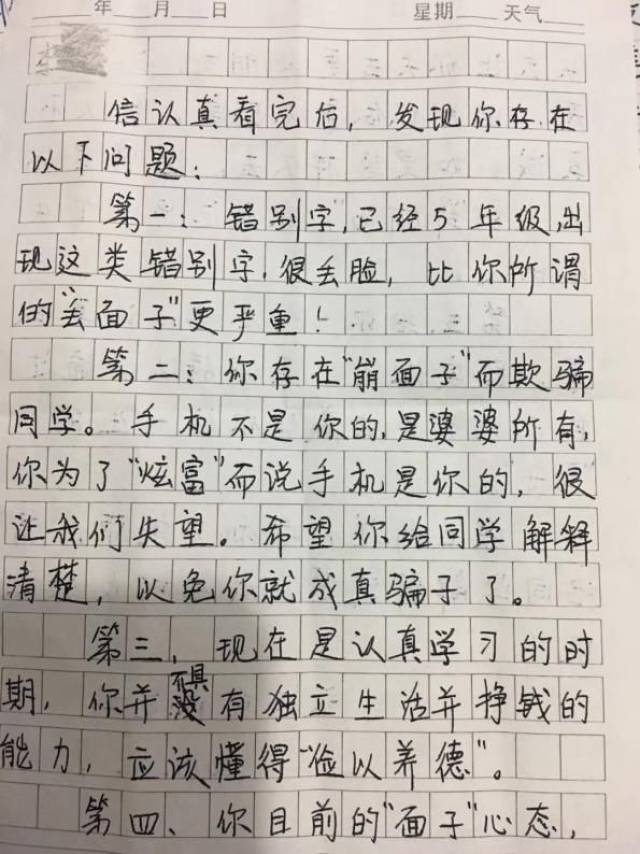 年 月 日 星期 天气
信认真看完后，发现你存在
以下问题：
第一：错别字，已经5年级，出
现这类错别字，很丢脸，比你所谓
的"丢面子"更严重！
第二：你存在"崩面子"而欺骗
同学。手机不是你的，是婆婆所有，
你为了"炫富"而说手机是你的，很
让我们失望。希望你给同学解释
清楚，以免你就成真骗子了。
第三、现在是认真学习的时
期，你并不具有独立生活并挣钱的
能力，应该懂得"俭以养德"。
第四、你目前的"面子"心态，